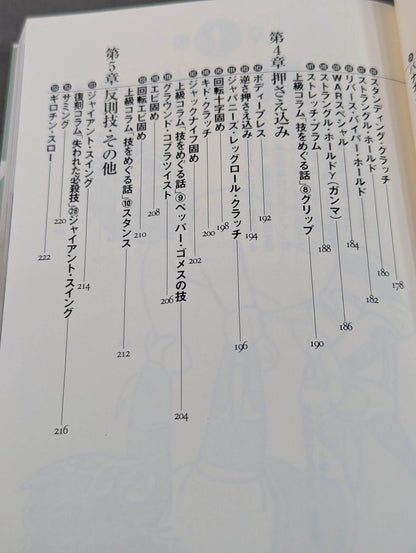 スタンディング・クラッチ 178
ストラングル・ホールド 180
リバース・バイパー・ホールド 182
WARスペシャル 184
ストラングル・ホールドγ（ガンマ） 186
ストレッチ・プラム 188
上級コラム「技をめぐる話」⑧グリップ 190
第4章 押さえ込み
ボディープレス 192
逆さ押さえ込み 194
ジャパニーズ・レッグロール・クラッチ 196
回転十字固め 198
キド・クラッチ 200
ジャックナイフ固め 202
上級コラム「技をめぐる話」⑨ペッパー・ゴメスの技 204
グラウンド・コブラツイスト 206
エビ固め 208
回転エビ固め 210
上級コラム「技をめぐる話」⑩スタンス 212
第5章 反則技・その他
ジャイアント・スイング 214
復刻コラム「失われた必殺技」㉘ジャイアント・スイング 216
サミング 220
ギロチン・スロー 222